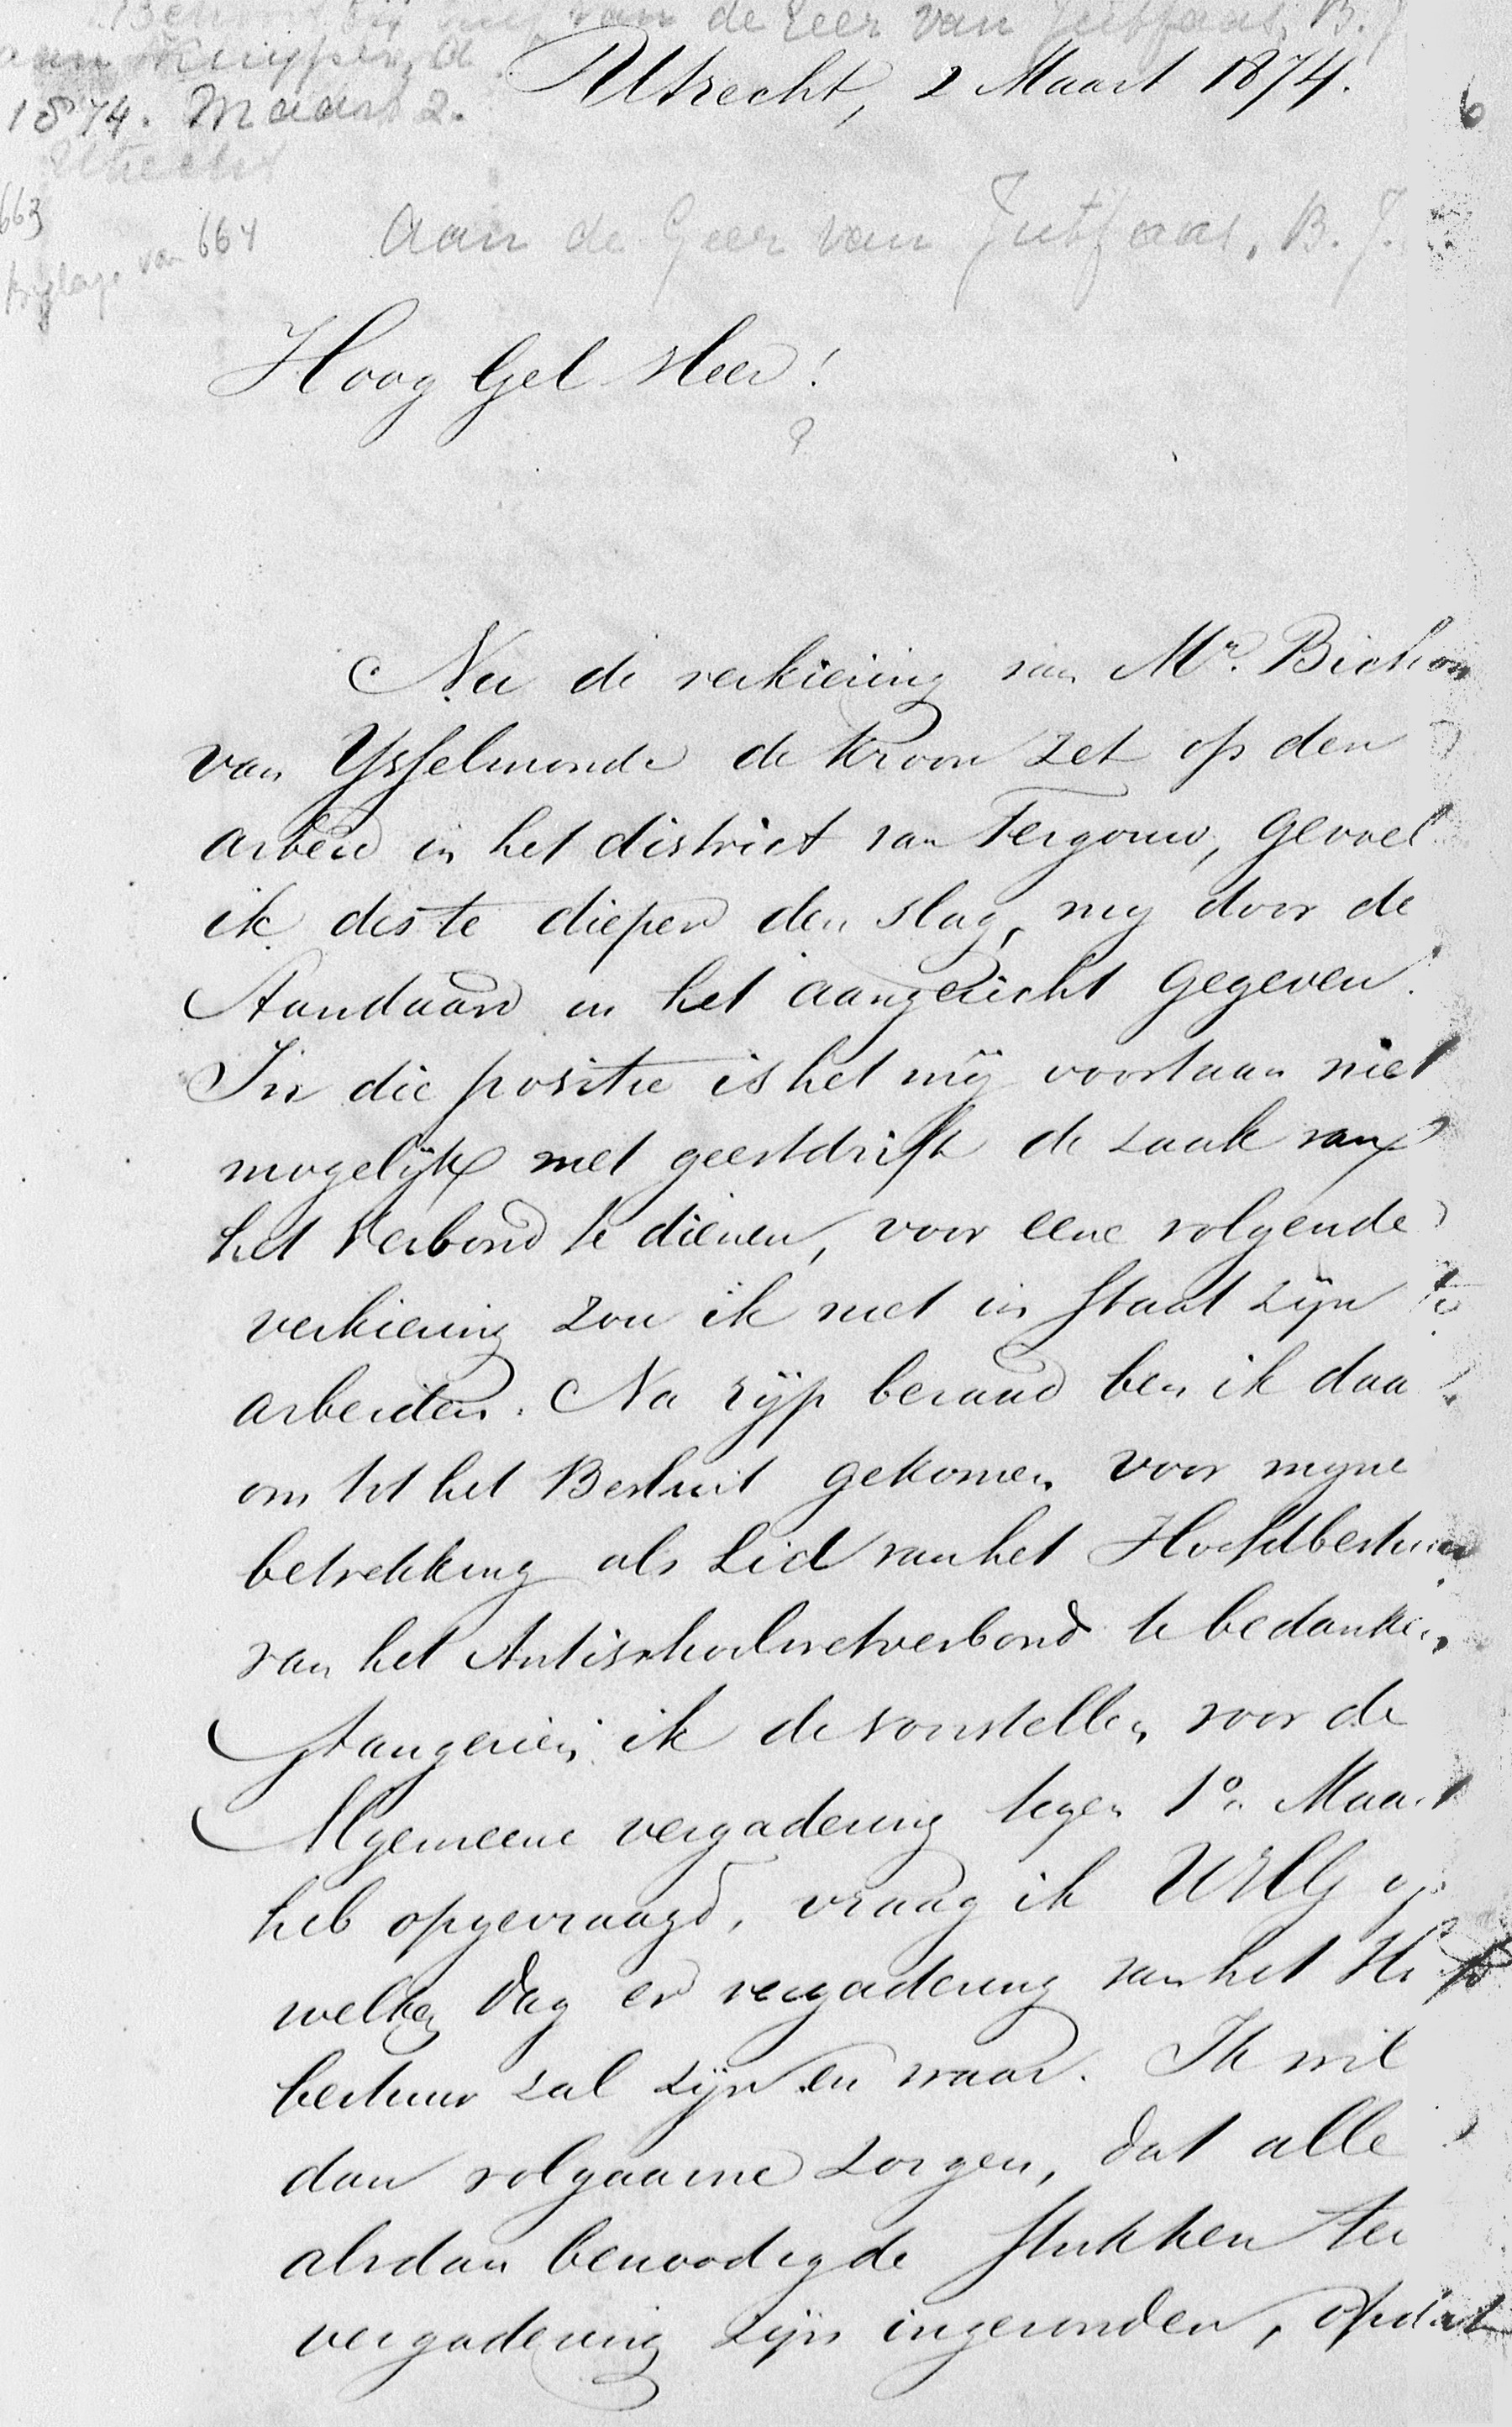 Behoort bij brief van de Geer van Jutfaas, B. J.
aan Kuyper, A.
1874. Maart 2.
Utrecht
663
Bijlage van 664
6
Utrecht, 2 Maart 1874.
Aan de Geer van Jutfaas, B. J.
Hoog Gel Heer!
?
Nu de verkiezing van Mr. Bichon
van Ysselmonde de kroon zet op den
arbeid in het district van Tergouw, gevoel
ik des te dieper den slag, my door de
Standaard in het aangezicht gegeven.
In die positie is het mij voortaan niet
mogelijk met geestdrift de zaak van
het Verbond te dienen, voor eene volgende
verkiezing zou ik niet in staat zijn te
arbeiden. Na rijp beraad ben ik daar
om tot het Besluit gekomen voor myne
betrekking als Lid van het Hoofdbestuur
van het Antischoolwetverbond te bedanken,
Aangezien ik de voorstellen voor de
Algemeene vergadering tegen 1n Maart
heb opgevraagd, vraag ik UHG op
welken dag er vergadering van het Hfd
bestuur zal zijn en waar. Ik wil
dan volgaarne zorgen, dat alle
alsdan benoodigde stukken ter
vergadering zijn ingezonden, opdat